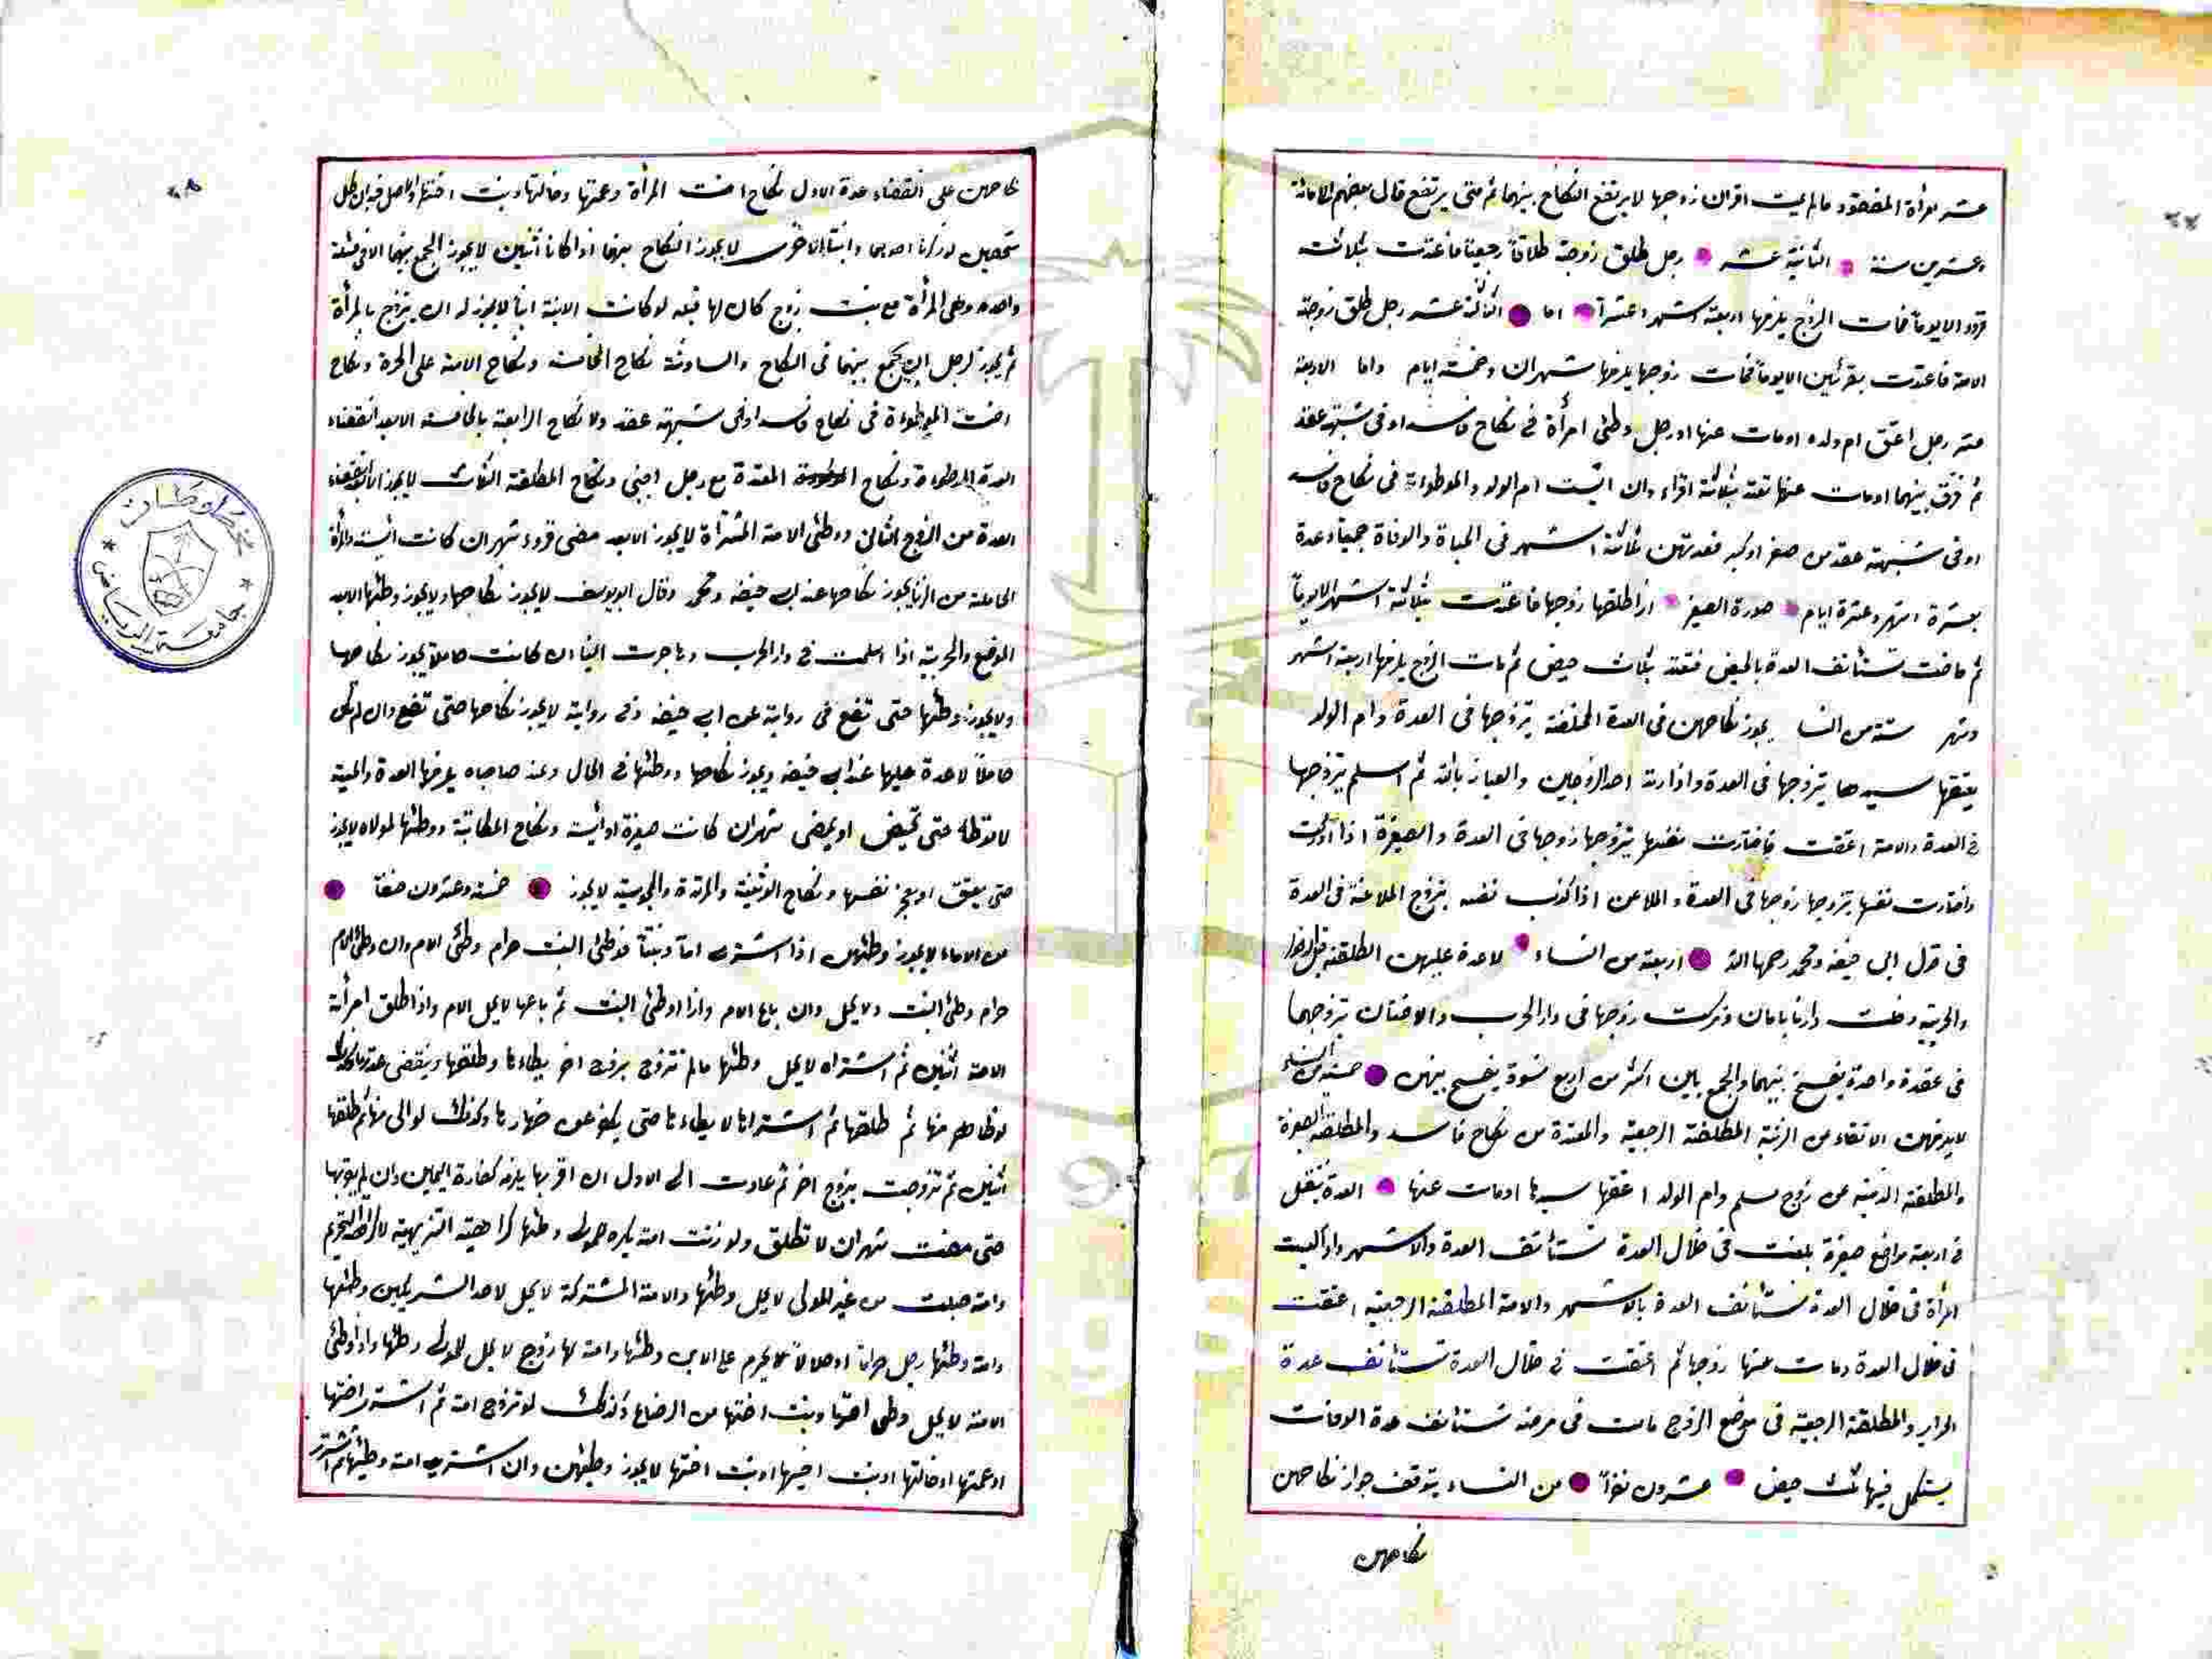 عشر امرأة المفقود ما لم يمت اقران زوجها لا يرتفع النكاح بينهما ثم متى يرتفع قال بعضهم الامائة
وعشرين سنة الثانية عشر رجل طلق زوجة طلاقا رجعيا فاعتدت بثلاثة
قروء الا يوما فمات الزوج يلزمها اربعة اشهر وعشرا اما الثالثة عشر رجل طلق زوجة
الامة فاعتدت بقرئين الا يوما فمات زوجها يلزمها شهران وخمسة ايام واما الاربعة
عشر رجل اعتق ام ولده او مات عنها او رجل وطئ امرأة في نكاح فاسد او في شبهة عقد
ثم فرق بينهما او مات عنها تعتد بثلاثة اقراء وان ايست ام الولد والموطوءة في نكاح فاسد
او في شبهة عقد من صغر او كبر فعدتهن ثلاثة اشهر في الحياة والوفاة جميعا وعدة
بعشرة اشهر وعشرة ايام صورة الصغيرة اذا طلقها زوجها فاعتدت بثلاثة اشهر الا يوما
ثم حاضت تستأنف العدة بالحيض فتعتد بثلاث حيض ثم مات الزوج يلزمها اربعة اشهر
وعشر ستة من النسا يجوز نكاحهن في العدة المختلعة يتزوجها في العدة وام الولد
يعتقها سيدها يتزوجها في العدة واذا ارتد احد الزوجين والعياذ بالله ثم اسلم يتزوجها
في العدة والامة اعتقت فاختارت نفسها يتزوجها زوجها في العدة والصغيرة اذا ادركت
واختارت نفسها يتزوجها زوجها في العدة والملاعن اذا اكذب نفسه يتزوج الملاعنة في العدة
في قول ابي حنيفة ومحمد رحمهما الله اربعة من النساء لا عدة عليهن المطلقة قبل الدخول
والحربية دخلت دارنا بامان وتركت زوجها في دار الحرب والاختان يتزوجهما
في عقدة واحدة يفسخ بينهما والجمع بين اكثر من اربع نسوة يفسخ بينهن خمسة من النساء
لا يلزمهن الاتقاء من الزينة المطلقة الرجعية والمعتدة من نكاح فاسد والمطلقة الصغيرة
والمطلقة الذمية من زوج مسلم وام الولد اعتقها سيدها او مات عنها العدة تنتقل
في اربعة مواضع صغيرة بلغت في خلال العدة تستأنف العدة والاشهر واذا ايست
امرأة في خلال العدة تستأنف العدة بالاشهر والامة المطلقة الرجعية اعتقت
في خلال العدة ومات عنها زوجها ثم اعتقت في خلال العدة تستأنف عدة
الحراير والمطلقة الرجعية في موضع الزوج مات في مرضه تستأنف عدة الوفات
يستكمل فيها ثلث حيض عشرون نفرا من النساء يتوقف جواز نكاحهن
نكاحهن
نكاحهن على انقضاء عدة الاول نكاح اخت المرأة وعمتها وخالتها وبنت اختها والاصل فيه ان كل
شخصين لو ذكرنا احديهما وانثا الاخرى لا يجوز النكاح بينهما اذا كانا انثيين لا يجوز الجمع بينهما الا في مسئلة
واحدة وهي المرأة مع بنت زوج كان لها قبله لو كانت الابنة ابنا لا يجوز له ان يتزوج بالمرأة
ثم يجوز لرجل ان يجمع بينهما في النكاح والسادسة نكاح الخامسة ونكاح الامة على الحرة ونكاح
اخت الموطوءة في نكاح فاسد او في شبهة عقد ولا نكاح الرابعة بالخامسة الا بعد انقضاء
العدة الموطوءة ونكاح المعتدة مع رجل اجنبي ونكاح المطلقة الثلاث لا يجوز الا بعد انقضاء
العدة من الزوج الثاني ووطئ الامة المشتراة لا يجوز الا بعد مضي قروء شهران كانت ايست والمرأة
الحاملة من الزنا يجوز نكاحها عند ابي حنيفة ومحمد وقال ابو يوسف لا يجوز نكاحها ولا يجوز وطئها الا بعد
الوضع والحربية اذا اسلمت في دار الحرب وهاجرت الينا ان كانت حاملا يجوز نكاحها
ولا يجوز وطئها حتى تضع في رواية عن ابي حنيفة وفي رواية لا يجوز نكاحها حتى تضع وان لم تكن
حاملا لا عدة عليها عند ابي حنيفة ويجوز نكاحها ووطئها في الحال وعند صاحباه يلزمها العدة والمبية
لا توطا حتى تحيض او يمضى شهران كانت صغيرة او ايست ونكاح المكاتبة ووطئها لمولاه لا يجوز
حتى يعتق او يعجز نفسها ونكاح الوثنية والمرتدة والمجوسية لا يجوز خمسة وعشرون صنفا
من الاماء لا يجوز وطئهن اذا اشترى اما وبنتا فوطئ البنت حرام وطئ الام وان وطئ الام
حرام وطئ البنت ولا يحل وان باع الام واذا اوطئ البنت ثم باعها لا يحل الام واذا طلق امرأة
الامة اثنين ثم اشتراه لا يحل وطئها ما لم تتزوج بزوج اخر يطاءها وطلقها وينقضي عدتها وكذلك
لو ظاهر منها ثم طلقها ثم اشتراها لا يطاءها حتى يكفر عن ظهارها وكذلك لو الى منها ثم طلقها
اثنين ثم تزوجت بزوج اخر ثم عادت الى الاول ان اقربها يلزمه كفارة اليمين وان لم يقربها
حتى مضت شهران لا تطلق ولو زنت امة يكره لمولى وطئها كراهية التنزيهية لا كراهة التحريم
وامة حبلت من غير المولى لا يحل وطئها والامة المشتركة لا يحل لاحد الشريكين وطئها
وامة وطئها رجل حراما او حلالا يحرم على الاب وطئها وامة لها زوج لا يحل للمولى وطئها واذا وطئ
الامة لا يحل وطى اختها وبنت اختها من الرضاع وكذلك لو تزوج امة ثم اشترى اختها
او عمتها او خالتها او بنت اخيها او بنت اختها لا يجوز وطئهن وان اشترى امة وطيئها ثم اشترى
مخطوطات
جامعة الرياض